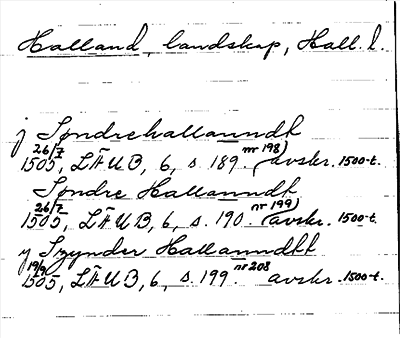 Halland, landskap, Hall. l.
j Søndrehallanndh
26/7 1505, LÄUB, 6, s. 189. nr 198) avskr. 1500-t.
Søndre Hallanndh
26/7 1505, LÄUB, 6, s. 190. nr 199) avskr. 1500-t.
y Szynder Hallanndht
19/9 1505, LÄUB, 6, s. 199. nr 208 avskr. 1500-t.